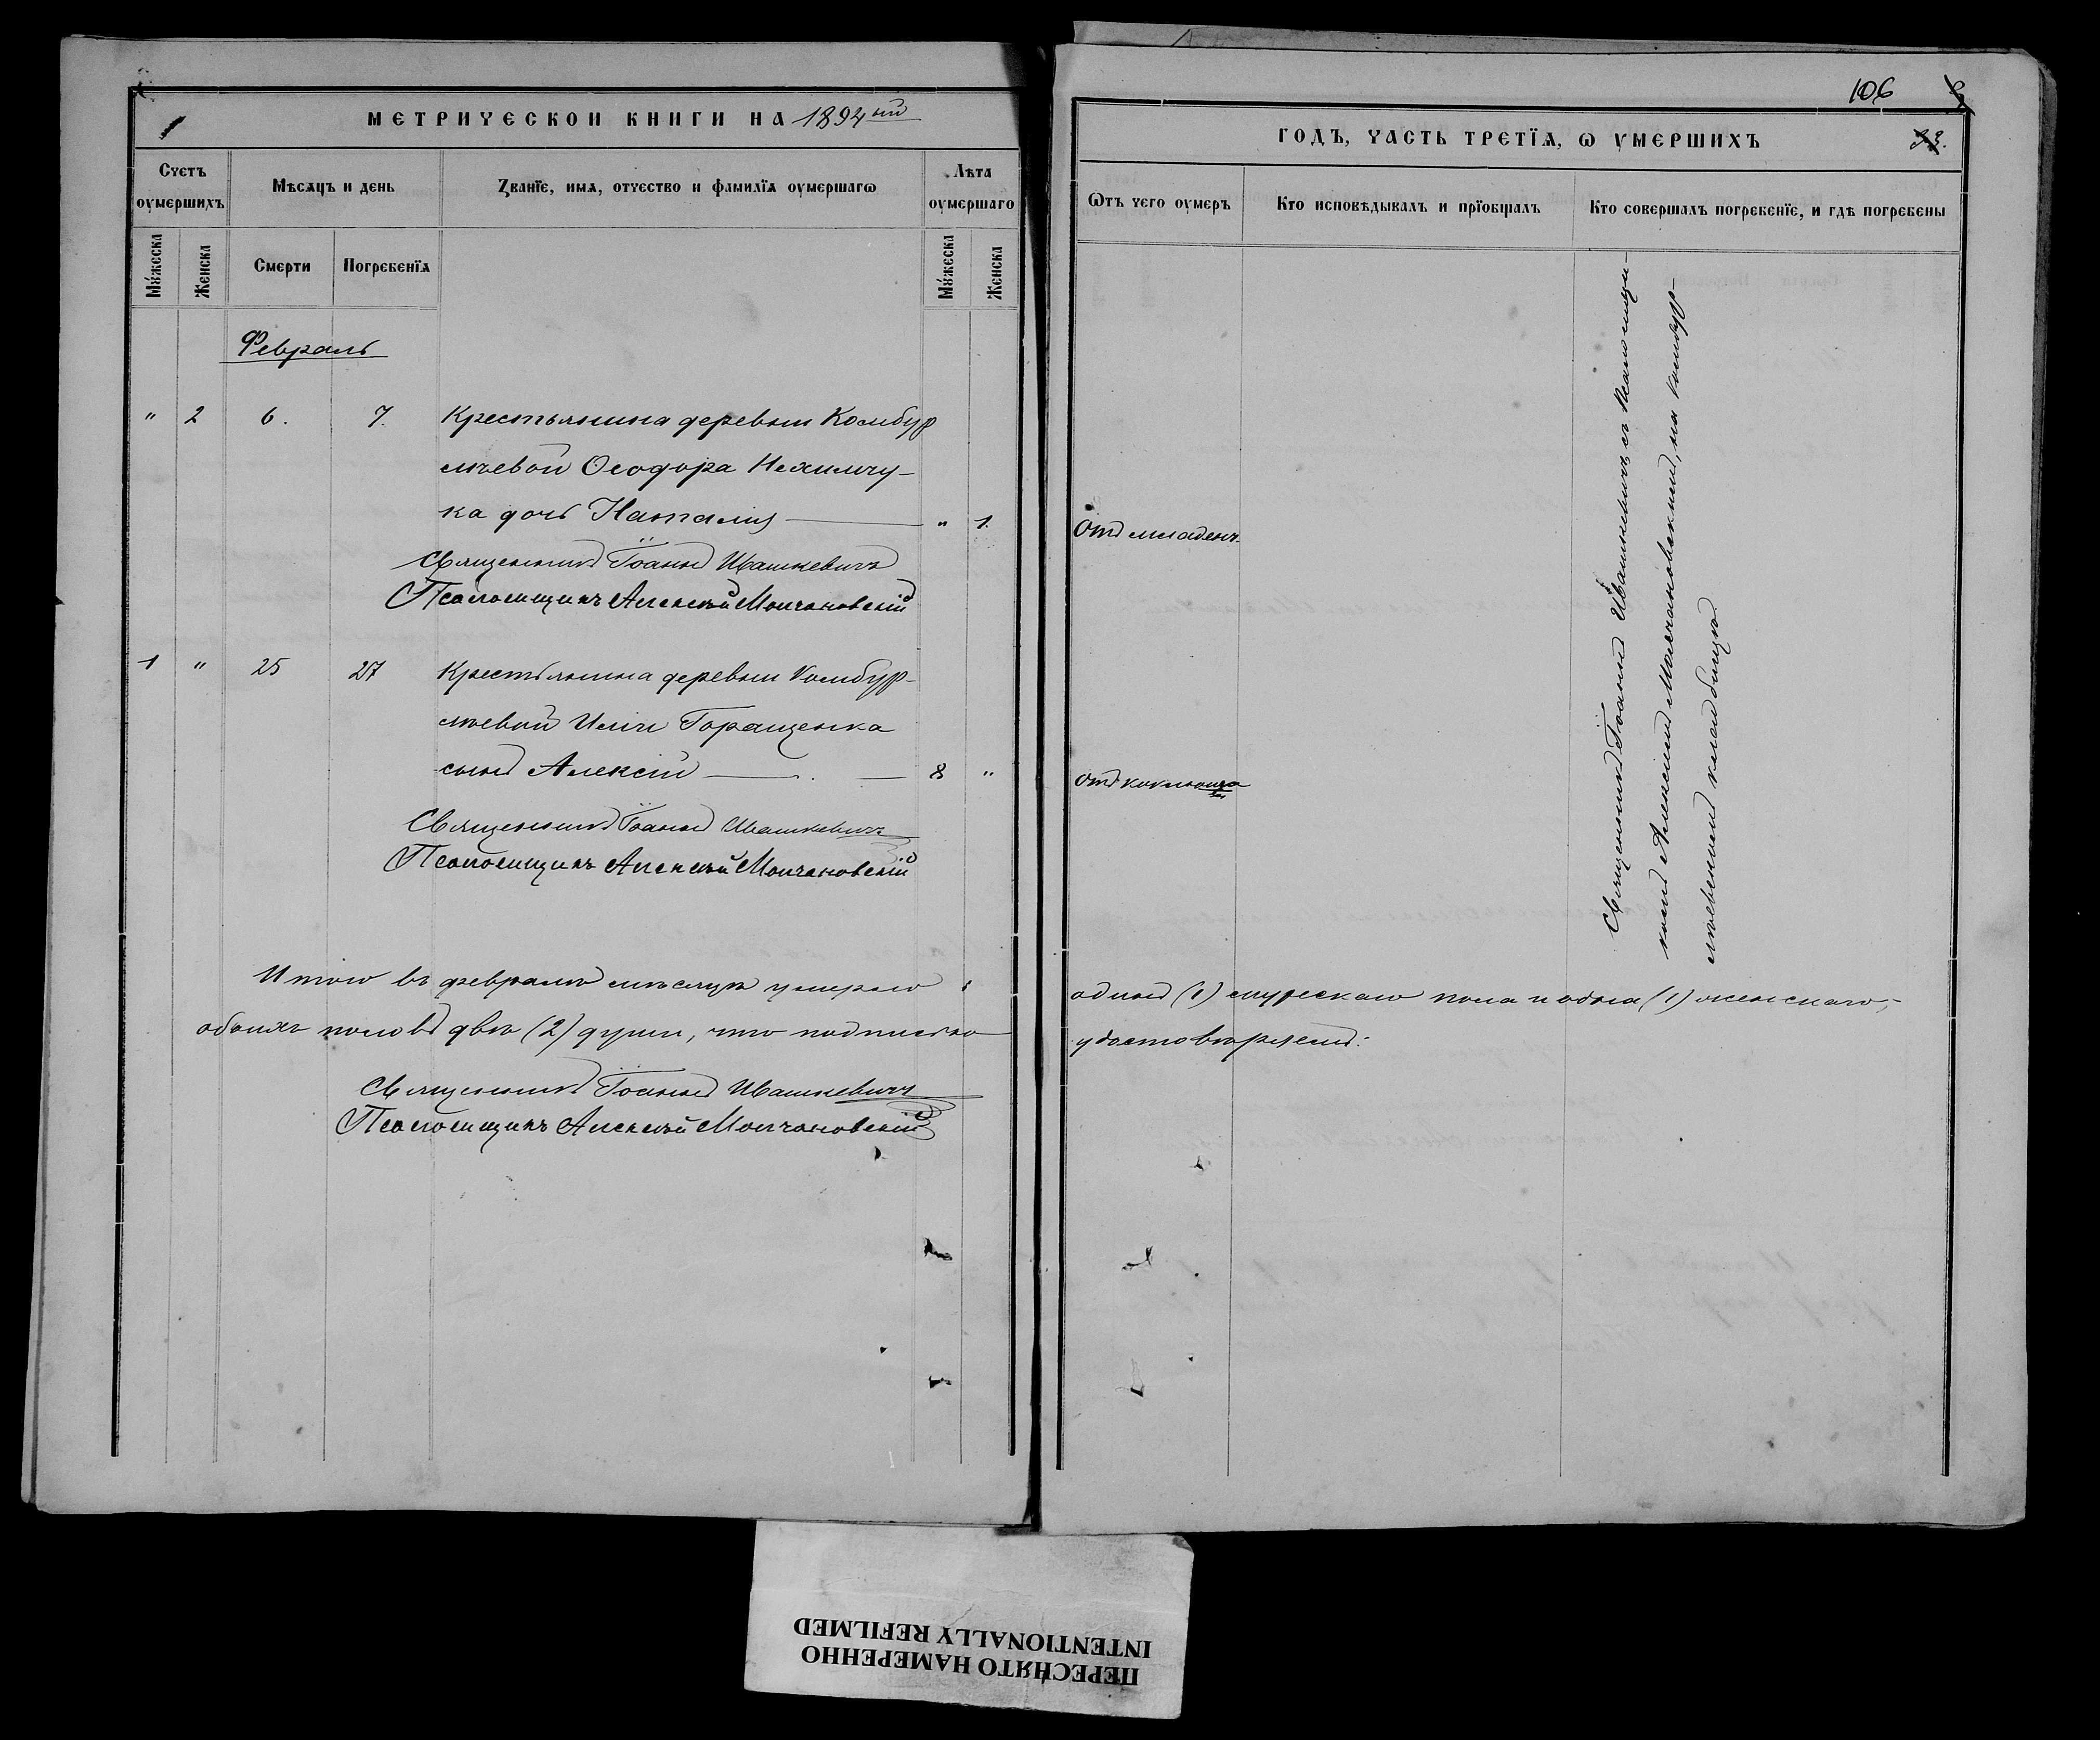 МЕТРИЧЕСКОИ КНИГИ НА 1894ый
Счетъ оумершихъ
Мѣсяцъ и день
Званїе, имя, отчество и фамилїя оумершагѡ
Лѣта оумершаго
Мужеска
Женска
Смерти
Погребенїя
Мужеска
Женска
Февраль
" 2 6. 7. Крестьянина деревни Комбур
лѣевой Ѳеодора Нехимчу-
ка дочь Наталия — " 1.
Священникъ Іоаннъ Ивашкевичъ
Псаломщикъ Алексѣй Молчановскій
1 " 25 27 Крестьянина деревни Комбур-
лѣевой Иліи Горащенка
сынъ Алексій — 8 "
Священникъ Іоаннъ Ивашкевичъ
Псаломщикъ Алексѣй Молчановскій
Итого въ февралѣ мѣсяцѣ умерло
обоихъ половъ двѣ (2) души, что подписью
Священникъ Іоаннъ Ивашкевичъ
Псаломщикъ Алексѣй Молчановскій
106
ГОДЪ, ЧАСТЬ ТРЕТЇЯ, Ѡ УМЕРШИХЪ
93.
Ѿтъ чего оумеръ
Кто исповѣдывалъ и прїобщалъ
Кто совершалъ погребенїе, и гдѣ погребены
Отъ младенч.
Отъ коклюша
Священникъ Іоаннъ Ивашкевичъ съ псаломщи-
комъ Алексѣемъ Молчановскимъ, на комбур-
лѣевскомъ кладбищѣ
одинъ (1) мужескаго пола и одна (1) женскаго,-
удостовѣряемъ:
ПЕРЕСНЯТО НАМЕРЕННО
INTENTIONALLY REFILMED